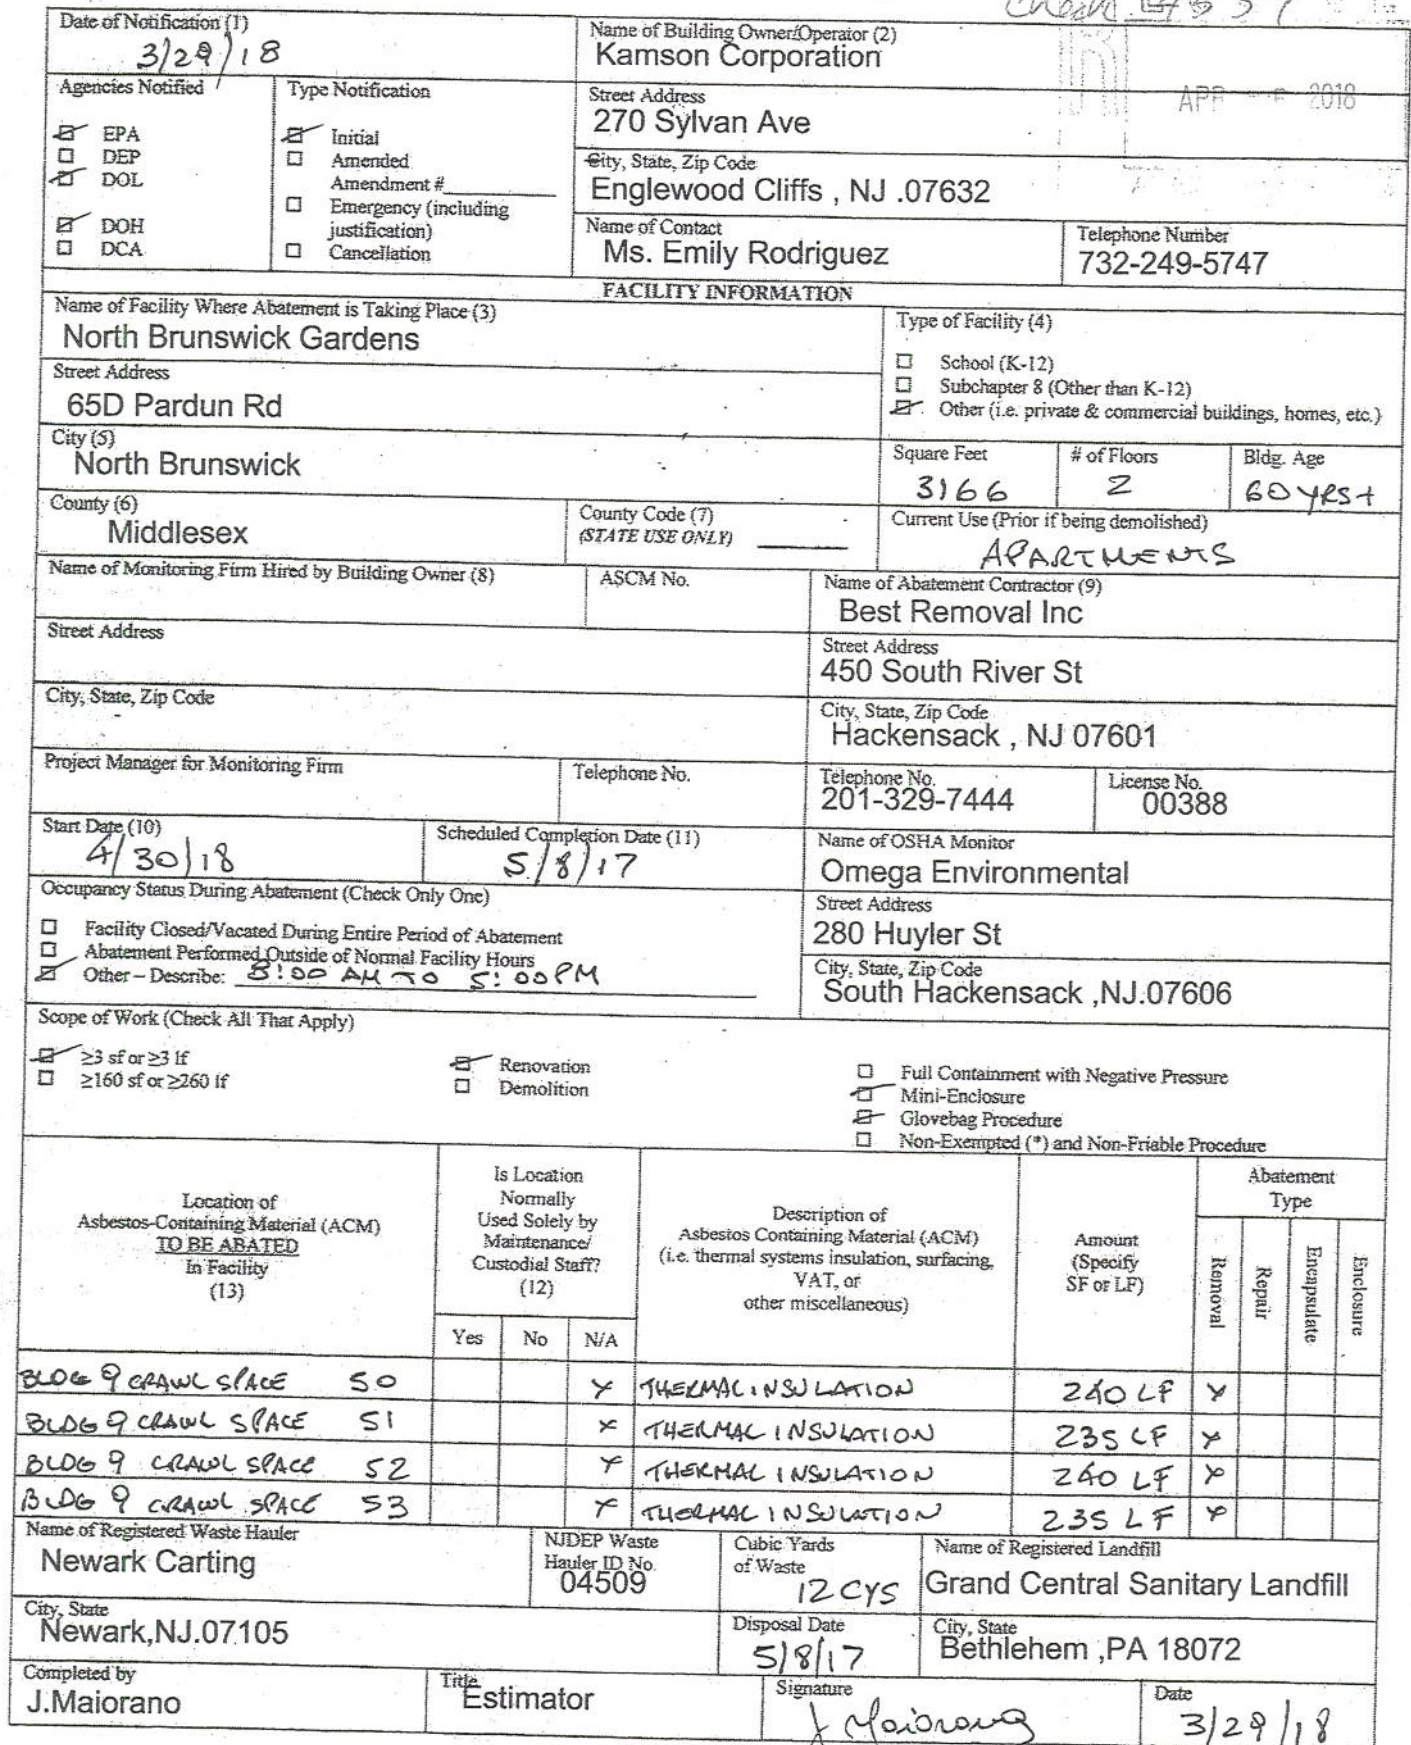 Check
Date of Notification (1)
3/29/18
Name of Building Owner/Operator (2)
Kamson Corporation
APR 2018
Agencies Notified
EPA
DEP
DOL
DOH
DCA
Type Notification
Initial
Amended
Amendment #
Emergency (including
justification)
Cancellation
Street Address
270 Sylvan Ave
City, State, Zip Code
Englewood Cliffs , NJ .07632
Name of Contact
Ms. Emily Rodriguez
Telephone Number
732-249-5747
FACILITY INFORMATION
Name of Facility Where Abatement is Taking Place (3)
North Brunswick Gardens
Street Address
65D Pardun Rd
City (5)
North Brunswick
County (6)
Middlesex
County Code (7)
(STATE USE ONLY)
Type of Facility (4)
School (K-12)
Subchapter 8 (Other than K-12)
Other (i.e. private & commercial buildings, homes, etc.)
Square Feet
3166
# of Floors
2
Bldg. Age
60 YRS+
Current Use (Prior if being demolished)
APARTMENTS
Name of Monitoring Firm Hired by Building Owner (8)
ASCM No.
Street Address
City, State, Zip Code
Project Manager for Monitoring Firm
Telephone No.
Name of Abatement Contractor (9)
Best Removal Inc
Street Address
450 South River St
City, State, Zip Code
Hackensack , NJ 07601
Telephone No.
201-329-7444
License No.
00388
Start Date (10)
4/30/18
Scheduled Completion Date (11)
5/8/17
Name of OSHA Monitor
Omega Environmental
Occupancy Status During Abatement (Check Only One)
Facility Closed/Vacated During Entire Period of Abatement
Abatement Performed Outside of Normal Facility Hours
Other – Describe: 8:00 AM TO 5:00 PM
Street Address
280 Huyler St
City, State, Zip Code
South Hackensack ,NJ.07606
Scope of Work (Check All That Apply)
≥3 sf or ≥3 lf
≥160 sf or ≥260 lf
Renovation
Demolition
Full Containment with Negative Pressure
Mini-Enclosure
Glovebag Procedure
Non-Exempted (*) and Non-Friable Procedure
Location of
Asbestos-Containing Material (ACM)
TO BE ABATED
In Facility
(13)
Is Location
Normally
Used Solely by
Maintenance/
Custodial Staff?
(12)
Yes No N/A
Description of
Asbestos Containing Material (ACM)
(i.e. thermal systems insulation, surfacing,
VAT, or
other miscellaneous)
Amount
(Specify
SF or LF)
Abatement
Type
Removal
Repair
Encapsulate
Enclosure
BLDG 9 CRAWL SPACE 50 X THERMAL INSULATION 240 LF X
BLDG 9 CRAWL SPACE 51 X THERMAL INSULATION 235 LF X
BLDG 9 CRAWL SPACE 52 X THERMAL INSULATION 240 LF X
BLDG 9 CRAWL SPACE 53 X THERMAL INSULATION 235 LF X
Name of Registered Waste Hauler
Newark Carting
NJDEP Waste
Hauler ID No.
04509
Cubic Yards
of Waste
12 CYS
Name of Registered Landfill
Grand Central Sanitary Landfill
City, State
Newark,NJ.07105
Disposal Date
5/8/17
City, State
Bethlehem ,PA 18072
Completed by
J.Maiorano
Title
Estimator
Signature
J Maiorano
Date
3/29/18